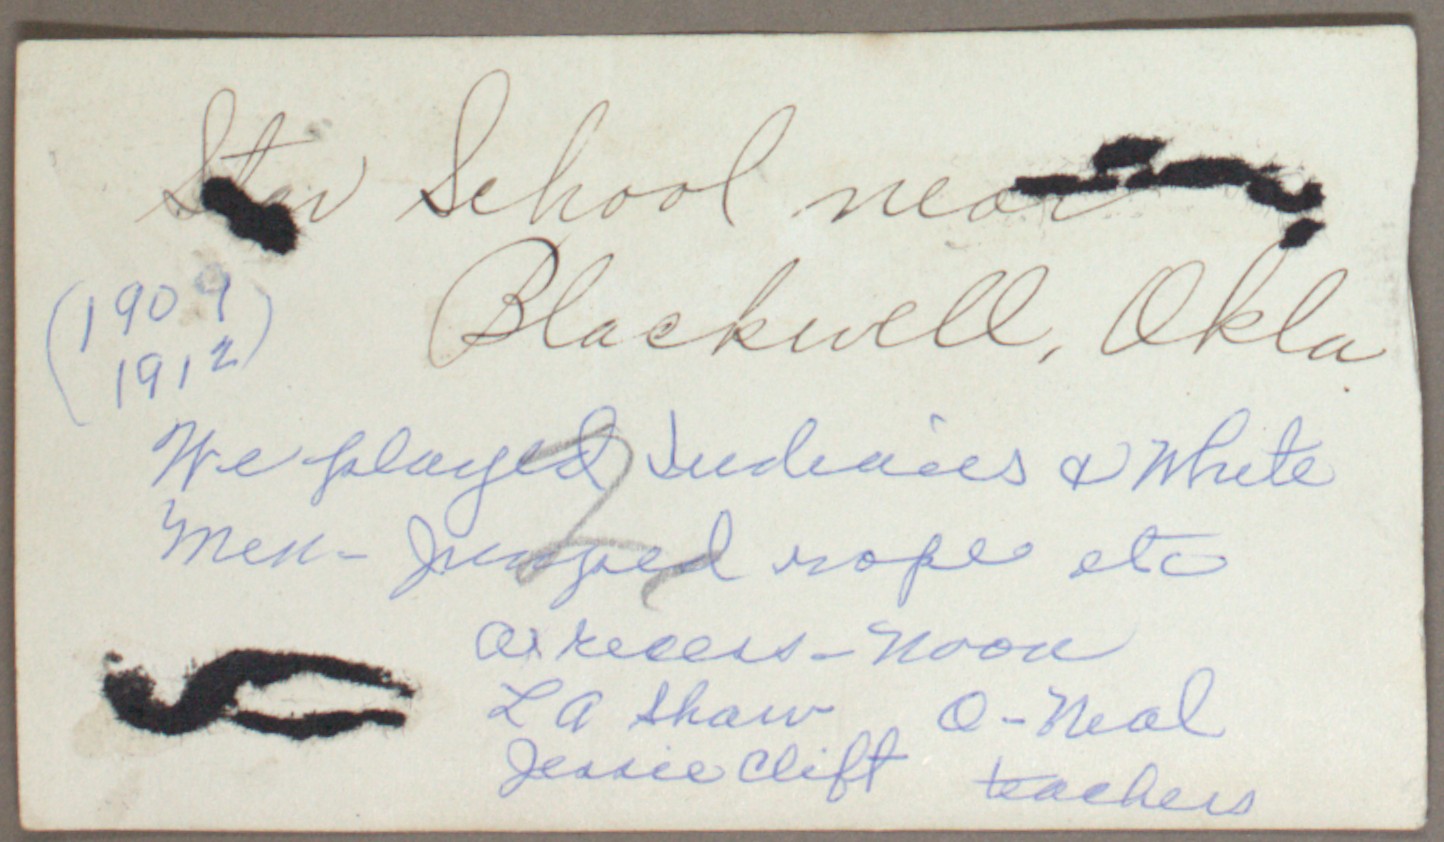 Star School near
Blackwell, Okla
(1909
1912)
We played Indians & White
Men - Jumped rope etc
2
at recess - Noon
L A Shaw O-Neal
Jessie Clift teachers